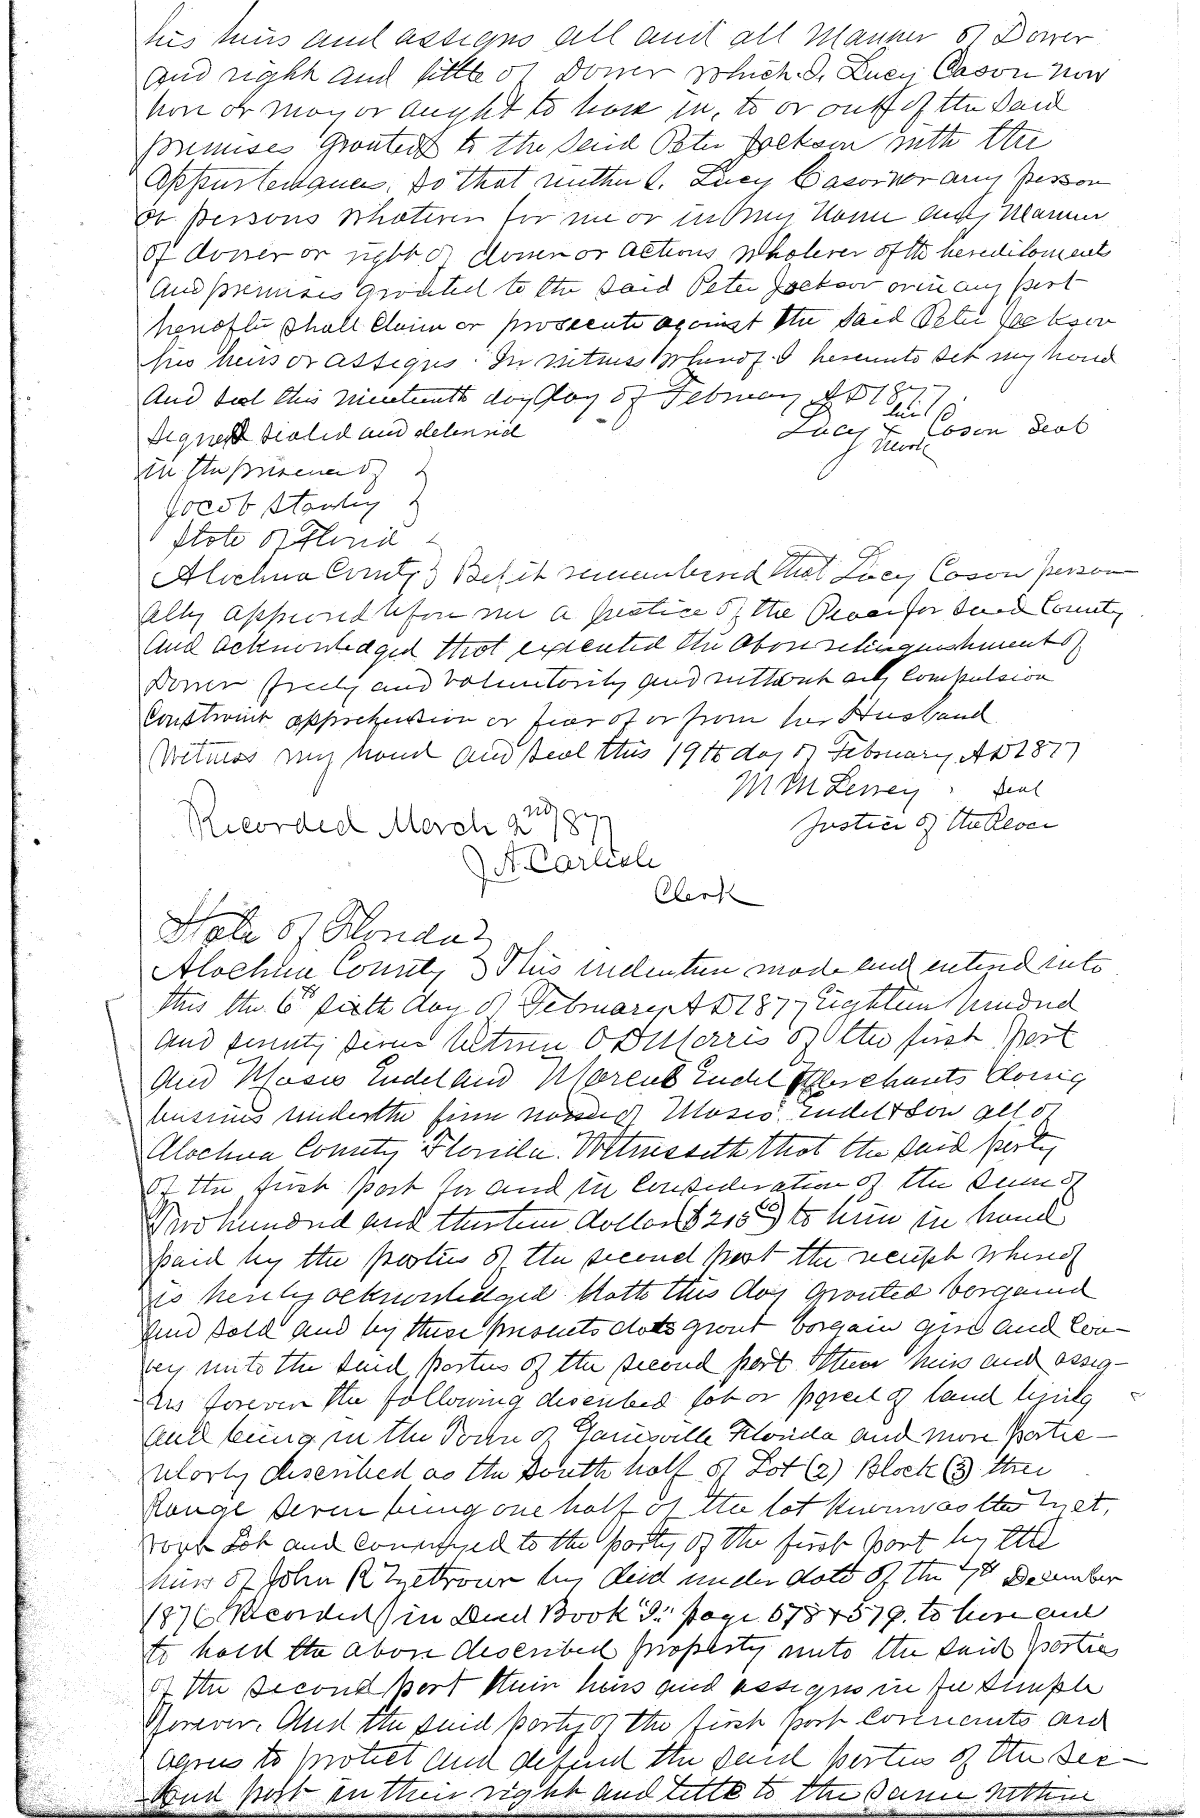 his heirs and assigns all and all Manner of Dower
and right and tittle of Dower which I, Lucy Cason now
have or may or aught to have in, to or out of the Said
premises Granted to the Said Peter Jackson with the
Appurtenances, So that neither I, Lucy Cason nor any person
or persons whatever for me or in my Name any Manner
of dower or right of dower or actions whatever of the hereditaments
And premises Granted to the Said Peter Jackson or in any part
thereof shall Claim or prosecute against the Said Peter Jackson
his heirs or assigns. In witness Whereof I hereunto Set my hand
And Seal this nineteenth day day of February AD 1877.
Signed Sealed and delivered
Lucy her x mark Cason Seal
in the presence of
Jacob Stanley
State of Florid
Alachua County } Be it remembered that Lucy Cason person
ally appeared before me a Justice of the Peace for Said County
And acknowledged that executed the Above relinquishment of
Dower freely and Voluntarily and without any Compulsion
Constraint apprehension or fear of or from her Husband
Witness my hand and Seal this 19th day of February AD 1877
Seal
Justice of the Peace
Recorded March 2nd 1877
J. A. Carlisle
Clerk
State of Florida }
Alachua County } This indenture made and entered into
this the 6th sixth day of February AD 1877 Eighteen hundred
and seventy seven between O D Morris of the first part
And Moses Endel and Marcus Endel Merchants doing
bussines under the firm name of Moses Endel & Son all of
Alachua County Florida. Witnesseth that the Said party
of the first part for and in Consideration of the Sum of
Two hundred and thirteen dollars to him in hand
paid by the parties of the second part the receipt whereof
is hereby acknowledged. Hath this day Granted bargained
And Sold and by these presents does grant bargain give and Con-
vey unto the Said parties of the second part their heirs and assig-
ns forever the following described lot or parcel of land lying
and being in the Town of Gainesville Florida and more Partic-
ularly described as the South half of Lot (2) Block (3) three
Range seven being one half of the lot known as the
Lot and conveyed to the party of the first part by the
heirs of John R by deed under date of the 7th December
1876 Recorded in Deed Book "I" page 578 & 579. to have and
to hold the above described property unto the Said parties
of the second part their heirs and assigns in fee Simple
forever. And the said party of the first part covenants and
agrees to protect and defend the Said parties of the Sec-
ond part in their right and title to the Same